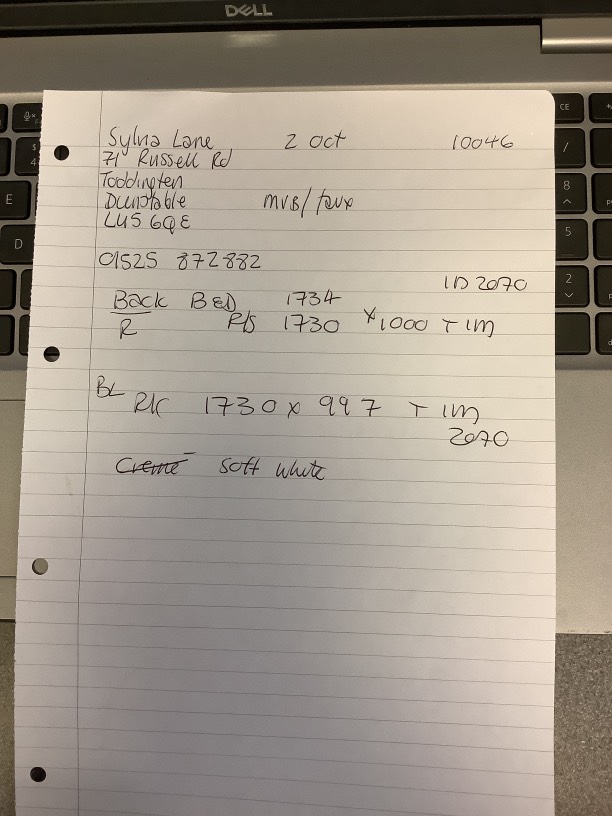 DELL
Sylvia Lane 2 Oct 10046
71 Russell Rd
Toddington
Dunstable MVB/faux
LU5 6QE
01525 872882
ID 2070
Back BED 1734
R P/S 1730 x 1000 T 1M
BL R/C 1730 x 997 T 1M
2070
Creme Soft White